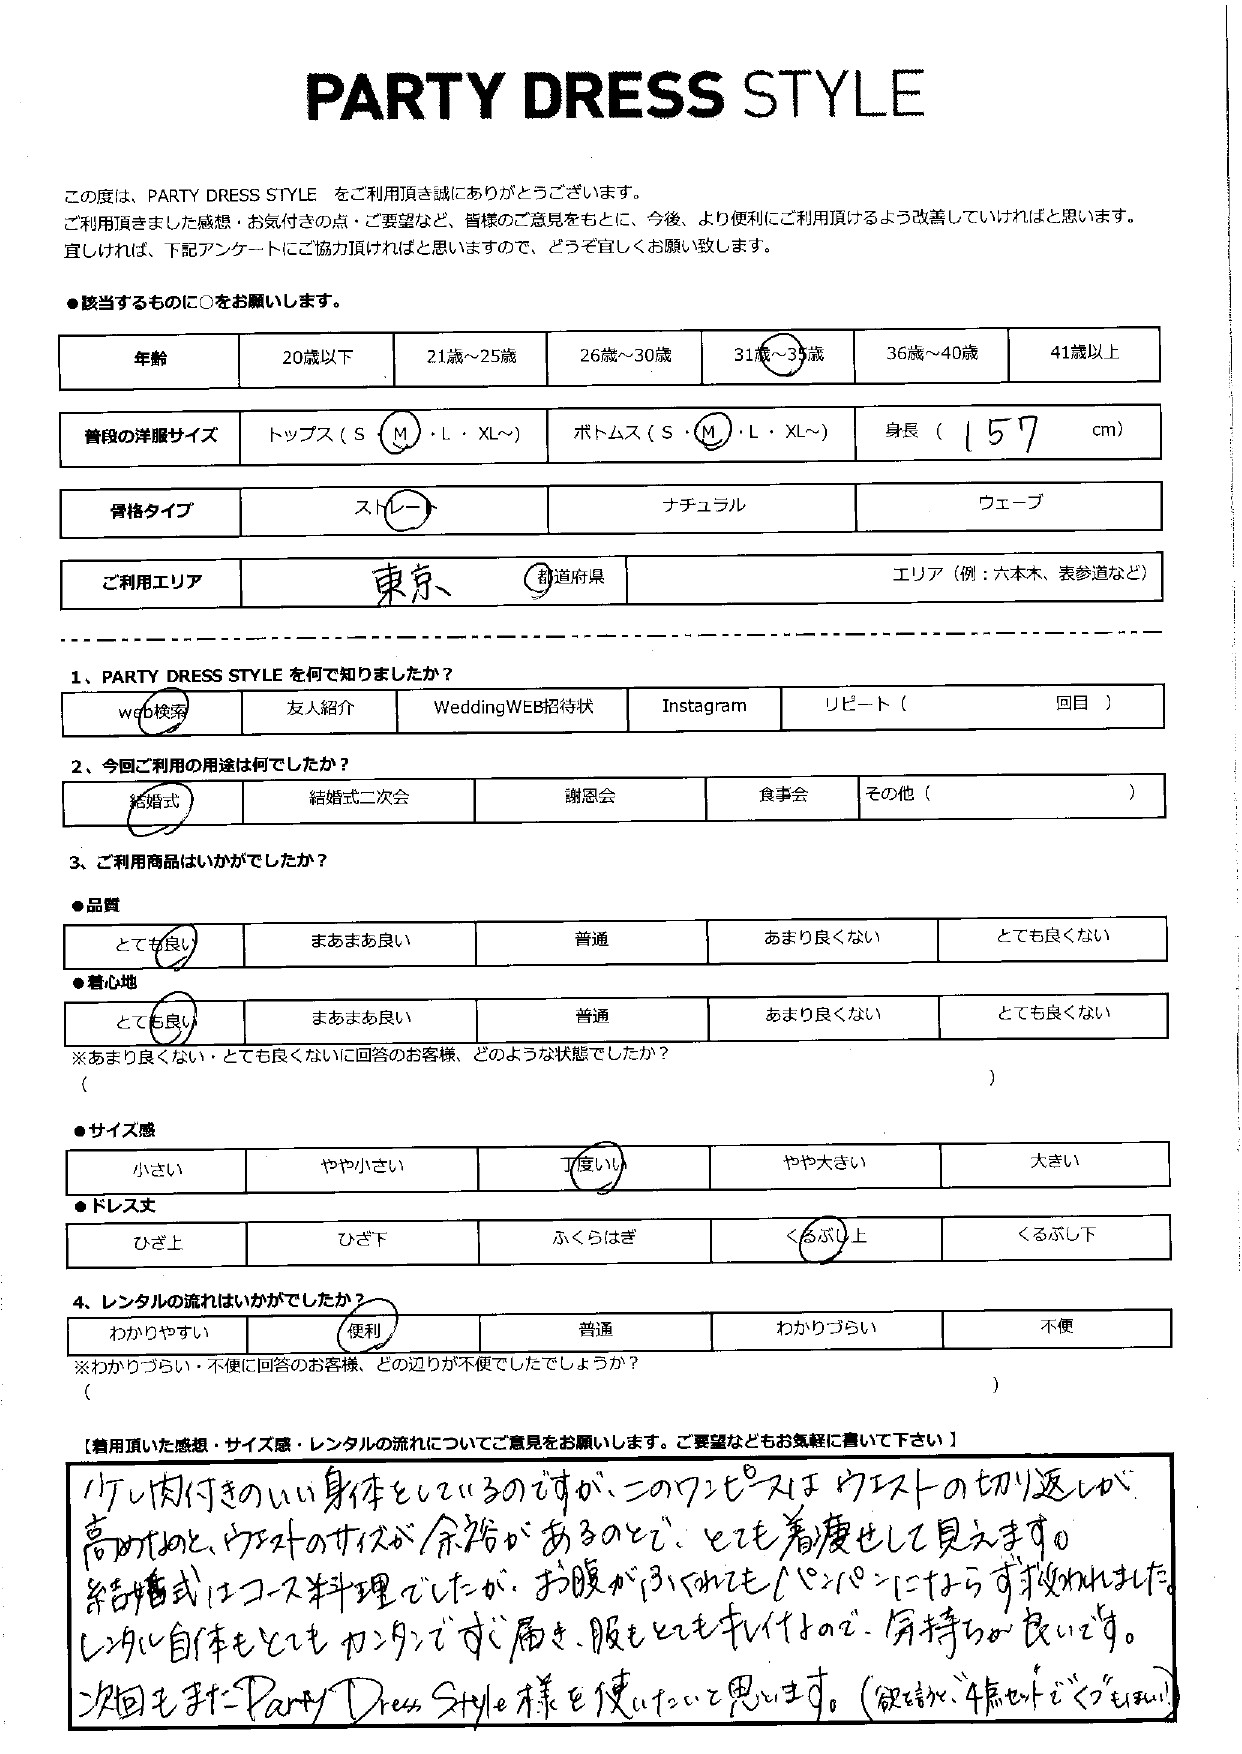 PARTY DRESS STYLE
この度は、PARTY DRESS STYLE をご利用頂き誠にありがとうございます。
ご利用頂きました感想・お気付きの点・ご要望など、皆様のご意見をもとに、今後、より便利にご利用頂けるよう改善していければと思います。
宜しければ、下記アンケートにご協力頂ければと思いますので、どうぞ宜しくお願い致します。
●該当するものに○をお願いします。
年齢 20歳以下 21歳～25歳 26歳～30歳 31歳～35歳 36歳～40歳 41歳以上
普段の洋服サイズ トップス ( S ・ M ・ L ・ XL～) ボトムス ( S ・ M ・ L ・ XL～) 身長 ( 157 cm)
骨格タイプ ストレート ナチュラル ウェーブ
ご利用エリア 東京 都道府県 エリア（例：六本木、表参道など）
1、PARTY DRESS STYLE を何で知りましたか？
web検索 友人紹介 WeddingWEB招待状 Instagram リピート（ 回目 ）
2、今回ご利用の用途は何でしたか？
結婚式 結婚式二次会 謝恩会 食事会 その他（ ）
3、ご利用商品はいかがでしたか？
●品質
とても良い まあまあ良い 普通 あまり良くない とても良くない
●着心地
とても良い まあまあ良い 普通 あまり良くない とても良くない
※あまり良くない・とても良くないに回答のお客様、どのような状態でしたか？
（ ）
●サイズ感
小さい やや小さい 丁度いい やや大きい 大きい
●ドレス丈
ひざ上 ひざ下 ふくらはぎ くるぶし上 くるぶし下
4、レンタルの流れはいかがでしたか？
わかりやすい 便利 普通 わかりづらい 不便
※わかりづらい・不便に回答のお客様、どの辺りが不便でしたでしょうか？
（ ）
【着用頂いた感想・サイズ感・レンタルの流れについてご意見をお願いします。ご要望などもお気軽に書いて下さい 】
少し肉付きのいい身体をしているのですが、このワンピースはウエストの切り返しが
高めなのと、ウエストのサイズが余裕があるのとで、とても着痩せして見えます。
結婚式はコース料理でしたが、お腹がふくれてもパンパンにならず救われました。
レンタル自体もとてもカンタンですぐ届き、服もとてもキレイなので、気持ちが良いです。
次回もまたParty Dress Style様を使いたいと思います。(欲を言うと、4点セットで"くつ"もほしい!)